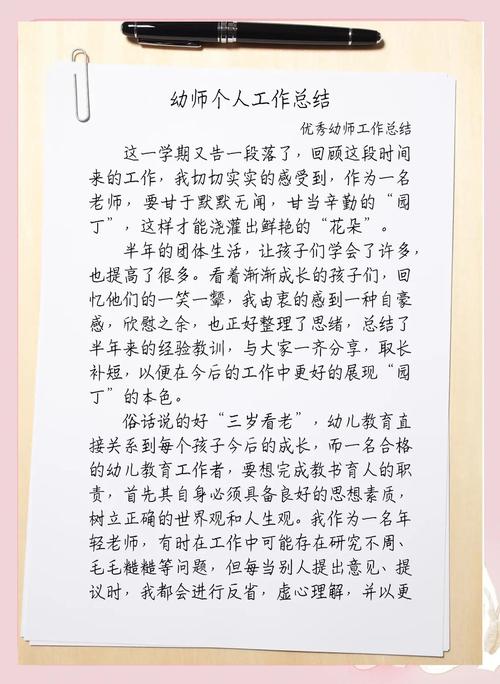 幼师个人工作总结
优秀幼师工作总结
这一学期又告一段落了，回顾这段时间
来的工作，我切切实实的感受到，作为一名
老师，要甘于默默无闻，甘当辛勤的“园
丁”，这样才能浇灌出鲜艳的“花朵”。
半年的团体生活，让孩子们学会了许多，
也提高了很多。看着渐渐成长的孩子们，回
忆他们的一笑一颦，我由衷的感到一种自豪
感，欣慰之余，也正好整理了思绪，总结了
半年来的经验教训，与大家一齐分享，取长
补短，以便在今后的工作中更好的展现“园
丁”的本色。
俗话说的好“三岁看老”，幼儿教育直
接关系到每个孩子今后的成长，而一名合格
的幼儿教育工作者，要想完成教书育人的职
责，首先其自身必须具备良好的思想素质，
树立正确的世界观和人生观。我作为一名年
轻老师，有时在工作中可能存在研究不周、
毛毛糙糙等问题，但每当别人提出意见、提
议时，我都会进行反省，虚心理解，并以更